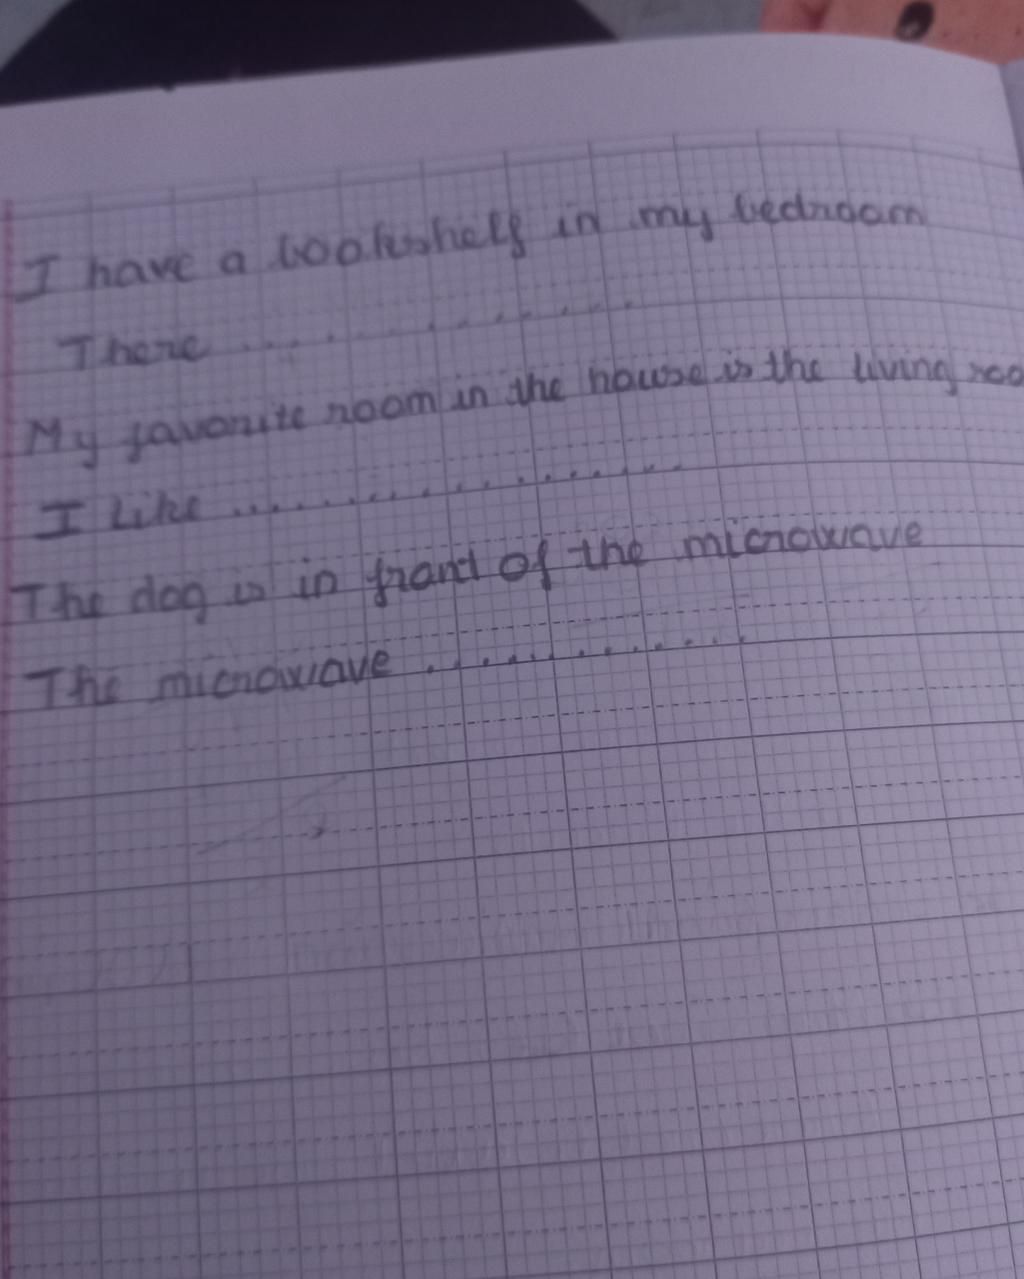 I have a bookshelf in my bedroom
There .............
My favorite room in the house is the living roo
I like ................
The dog is in front of the microwave
The microwave .............